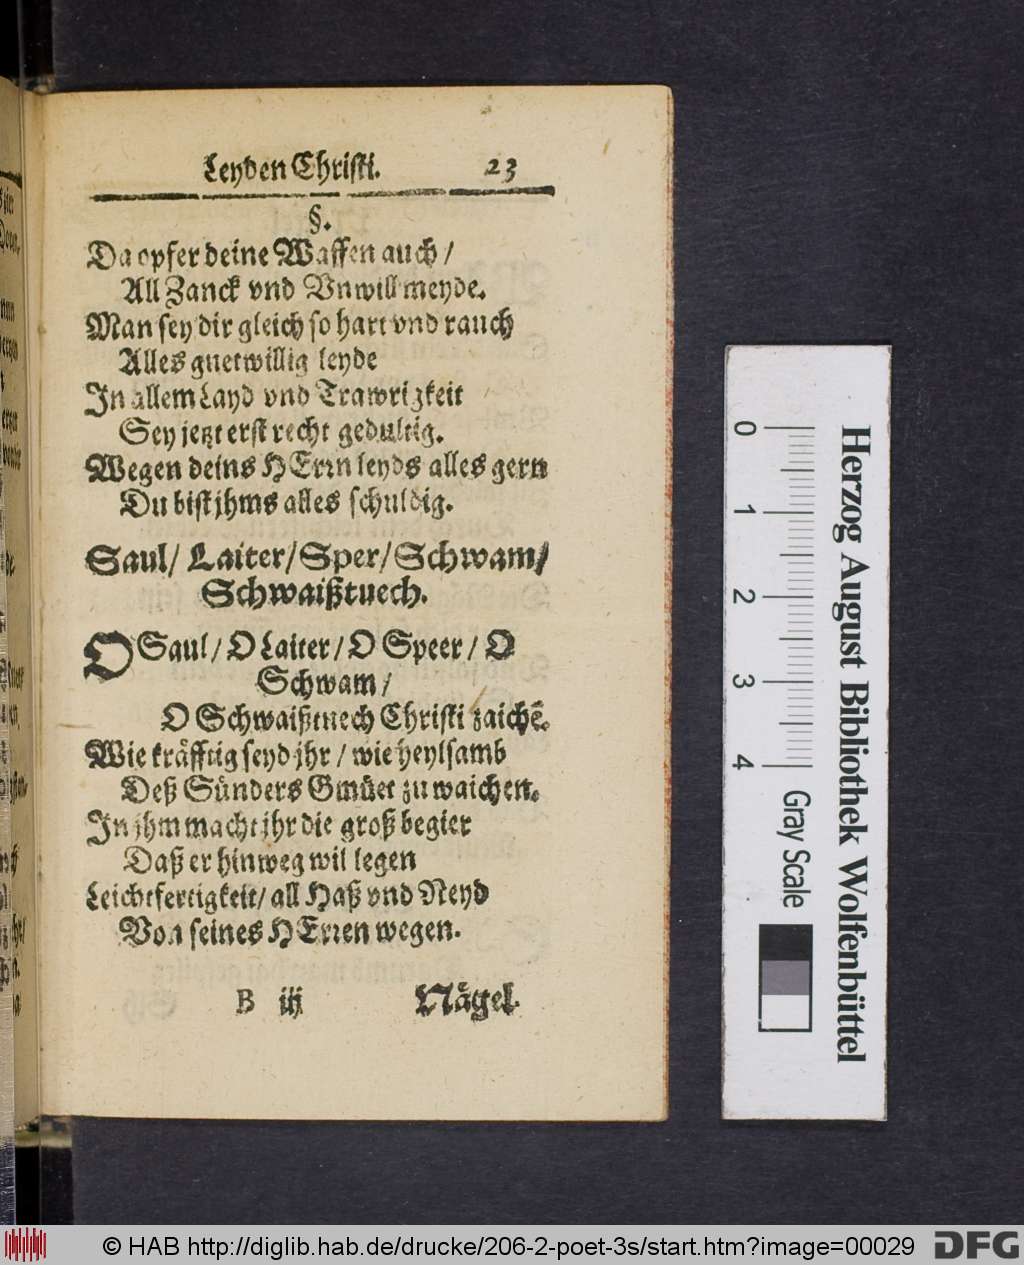 Leyden Christi. 23
§.
Da opfer deine Waffen auch /
All Zanck vnd Vnwill meyde.
Man sey dir gleich so hart vnd rauch
Alles guetwillig leyde
In allem Layd vnd Trawrigkeit
Sey jetzt erst recht gedultig.
Wegen deins HErrn leyds alles gern
Du bist jhms alles schuldig.
Saul / Laiter / Sper / Schwam /
Schwaißtuech.
O Saul / O Laiter / O Speer / O
Schwam /
O Schwaißtuech Christi zaichẽ.
Wie kräfftig seyd jhr / wie heylsamb
Deß Sünders Gmüet zu waichen.
In jhm macht jhr die groß begier
Daß er hinweg wil legen
Leichtfertigkeit / all Haß vnd Neyd
Von seines HErren wegen.
B iij Nägel.
0 1 2 3 4
Gray Scale
Herzog August Bibliothek Wolfenbüttel
© HAB http://diglib.hab.de/drucke/206-2-poet-3s/start.htm?image=00029 DFG